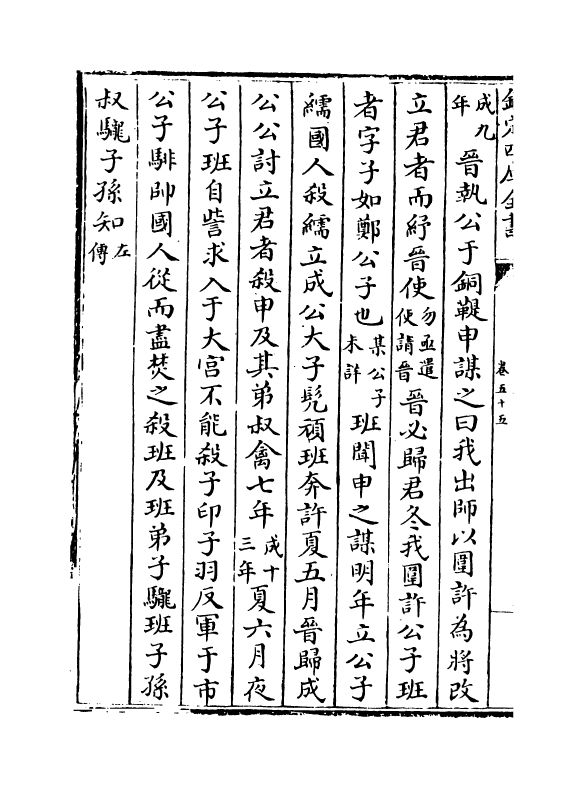 欽定四庫全書
卷五十五
成九年晉執公于銅鞮申謀之曰我出師以圍許為將改
立君者而紓晉使勿亟遣使請晉晉必歸君冬我圍許公子班
者字子如鄭公子也某公子未詳班聞申之謀明年立公子
繻國人殺繻立成公大子髡頑班奔許夏五月晉歸成
公公討立君者殺申及其弟叔禽七年成十三年夏六月夜
公子班自訾求入于大宫不能殺子印子羽反軍于市
公子騑帥國人從而盡焚之殺班及班弟子驪班子孫
叔驪子孫知左傳